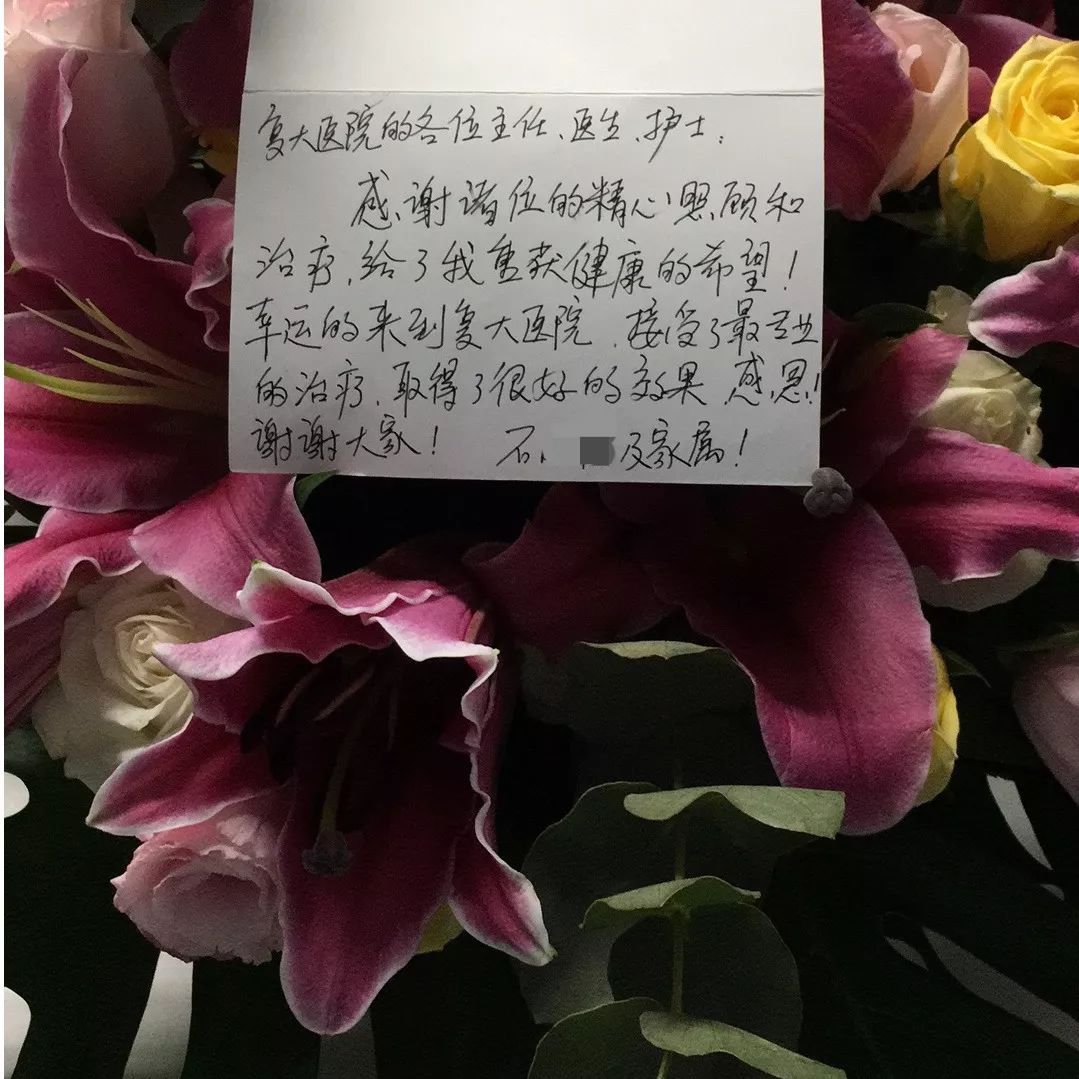 复大医院的各位主任、医生、护士:
感谢诸位的精心照顾和
治疗,给了我重获健康的希望!
幸运的来到复大医院,接受了最专业
的治疗,取得了很好的效果 感恩!
谢谢大家! 石、 及家属!